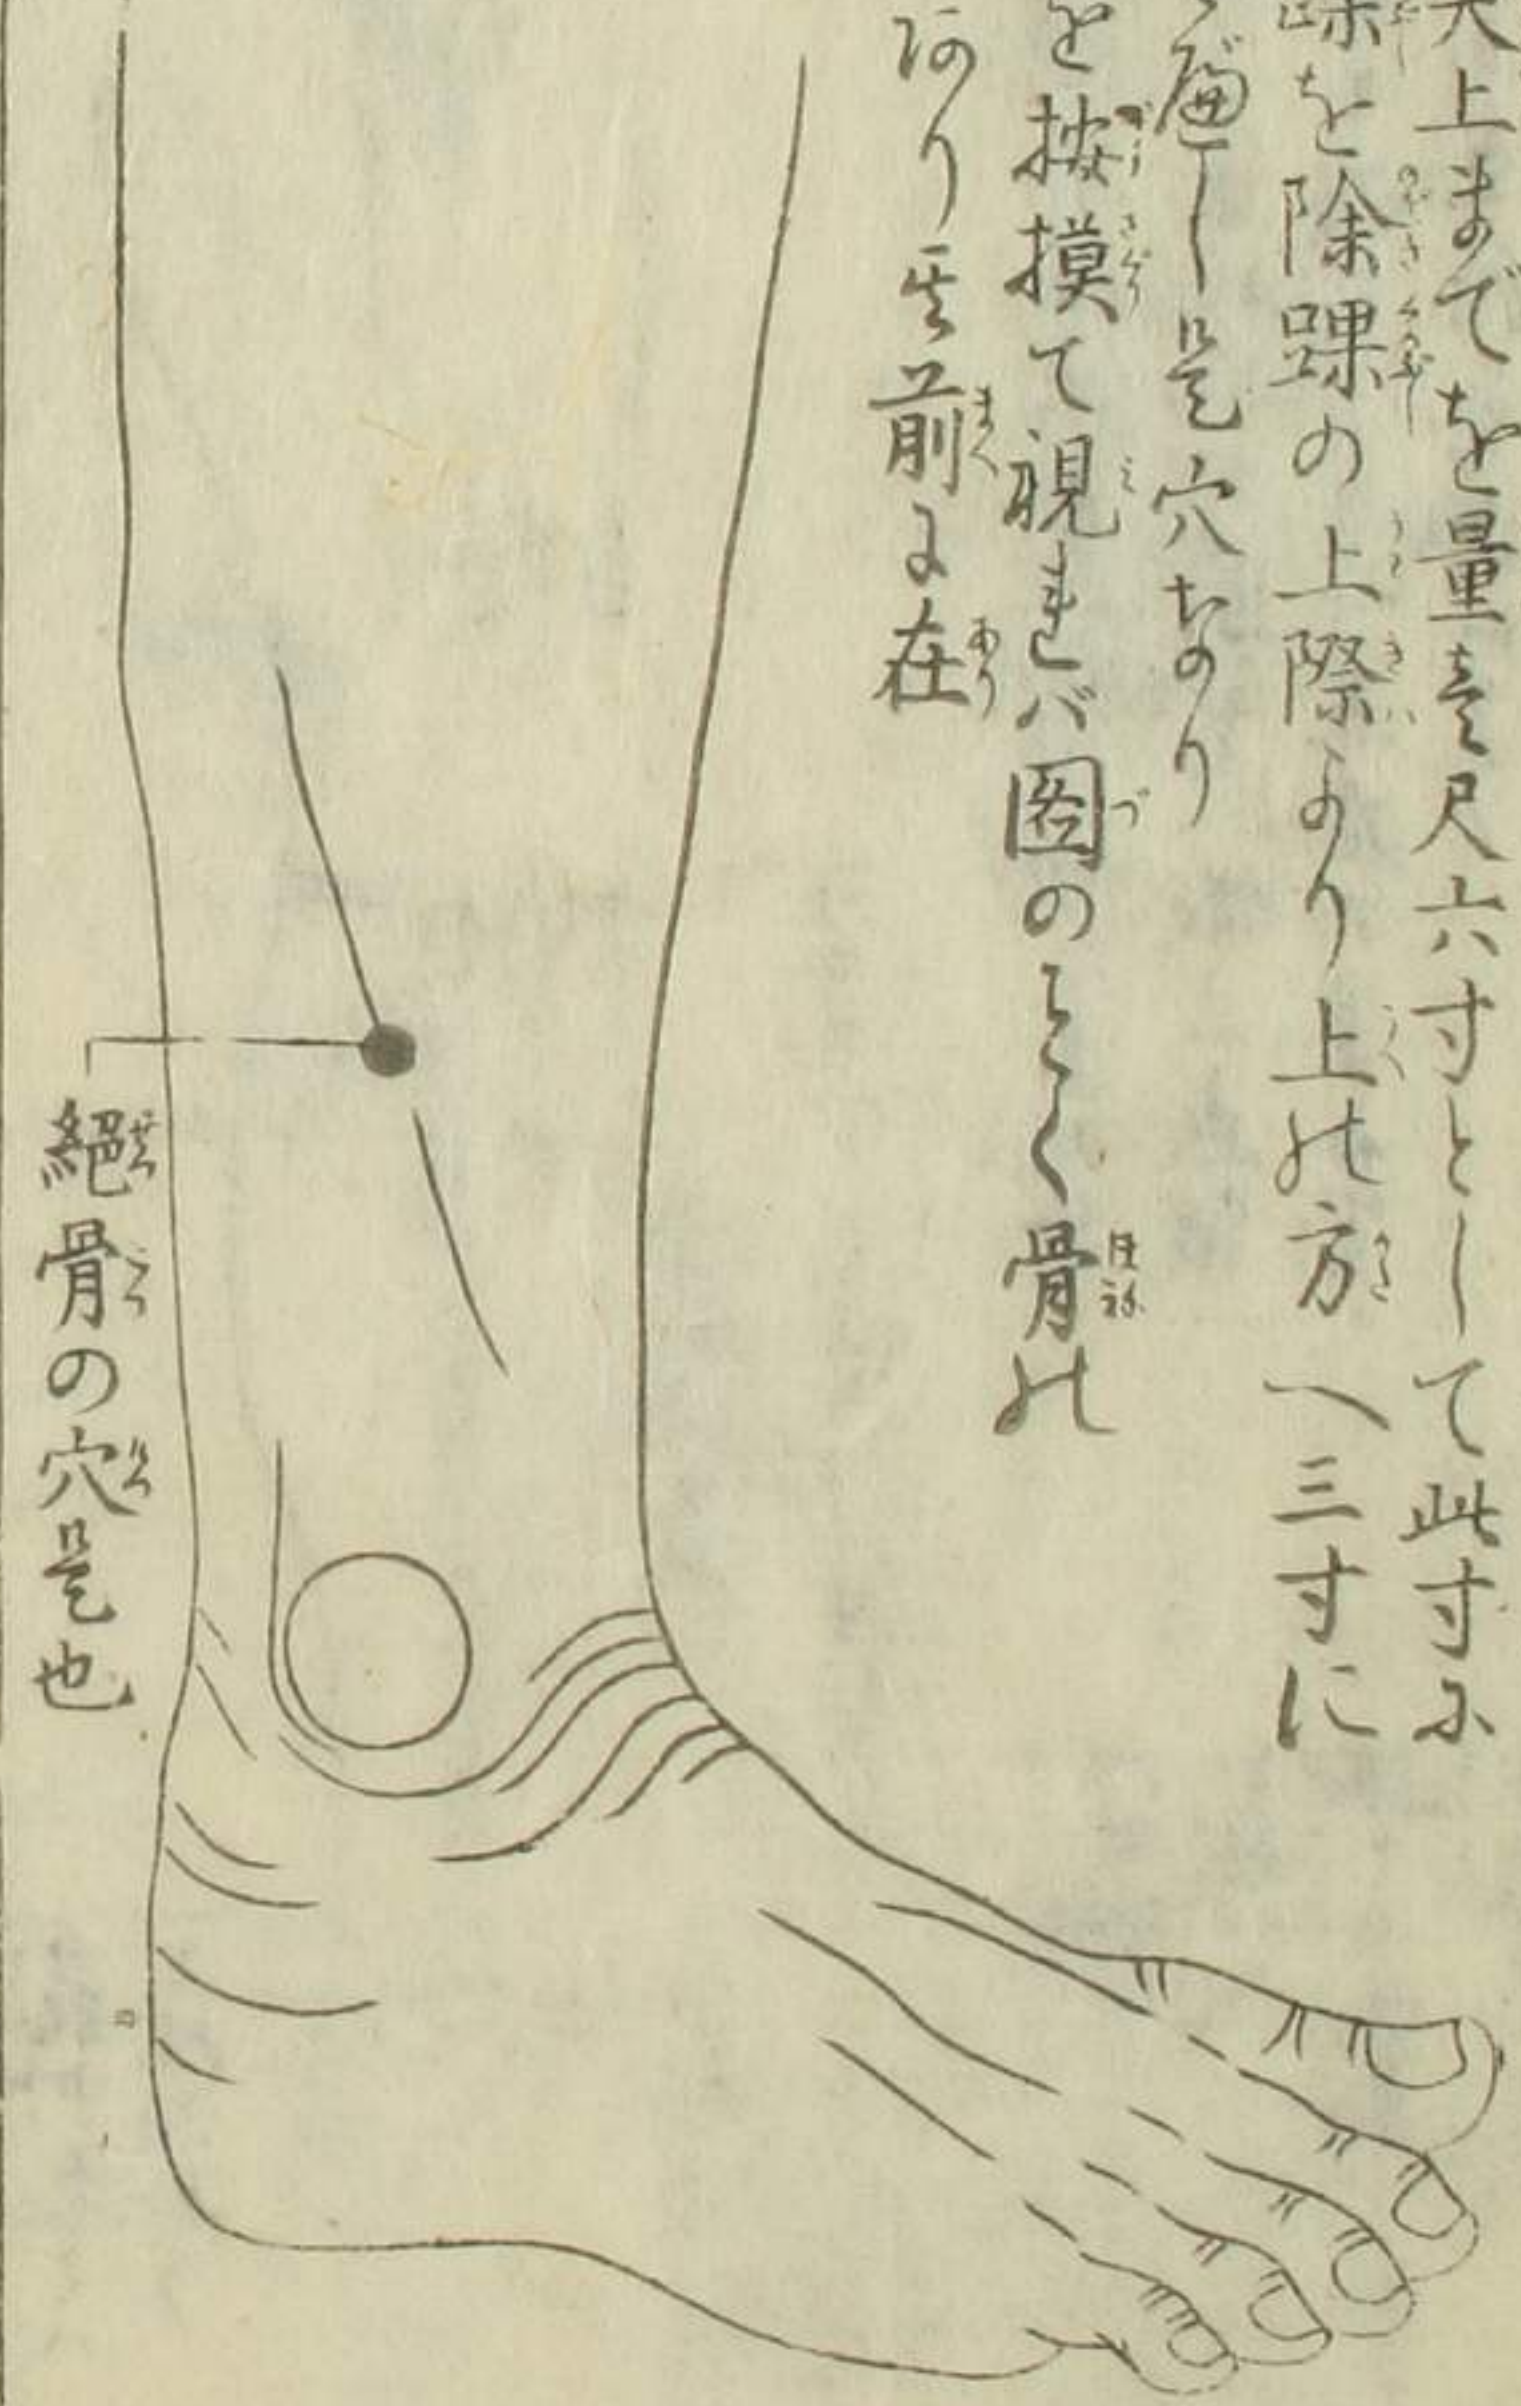 上までを量壹尺六寸として此寸に
を除踝の上際より上の方へ三寸に
し是穴なり
を按摸て視れバ図のごとく骨の
あり其前に在
絕骨の穴是也